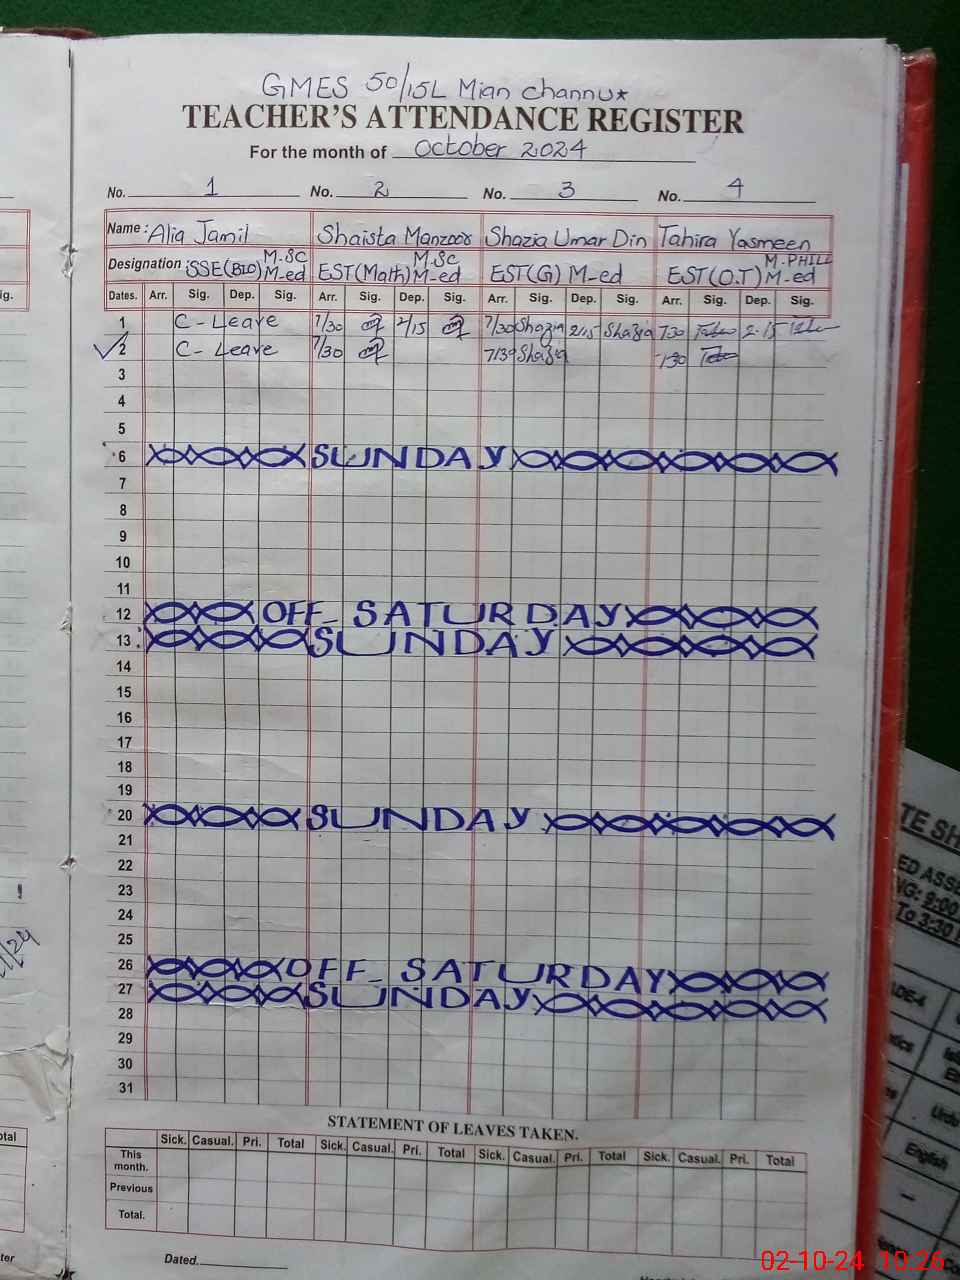 GMES 50/15L Mian Channu*
TEACHER'S ATTENDANCE REGISTER
For the month of October 2024
No. 1 No. 2 No. 3 No. 4
Name: Alia Jamil Shaista Manzoor Shazia Umar Din Tahira Yasmeen
Designation: SSE(BIO) M.Sc M-ed EST(Math) M.Sc M-ed EST(G) M-ed EST(O.T) M.PHILL M-ed
Dates. Arr. Sig. Dep. Sig. Arr. Sig. Dep. Sig. Arr. Sig. Dep. Sig. Arr. Sig. Dep. Sig.
1 C-Leave 7/30 2/15 7/30 Shazia 2/15 Shazia 7:30 2:15
2 C-Leave 7/30 7/30 Shazia 7:30
3
4
5
6 SUNDAY
7
8
9
10
11
12 OFF-SATURDAY
13 SUNDAY
14
15
16
17
18
19
20 SUNDAY
21
22
23
24
25
26 OFF-SATURDAY
27 SUNDAY
28
29
30
31
STATEMENT OF LEAVES TAKEN.
Sick. Casual. Pri. Total Sick. Casual. Pri. Total Sick. Casual. Pri. Total Sick. Casual. Pri. Total
This month.
Previous
Total.
Dated.
ig.
otal
ter
TE SH
ED ASSE
NG: 9:00
To 3:30
Urdu
English
02-10-24 10:26